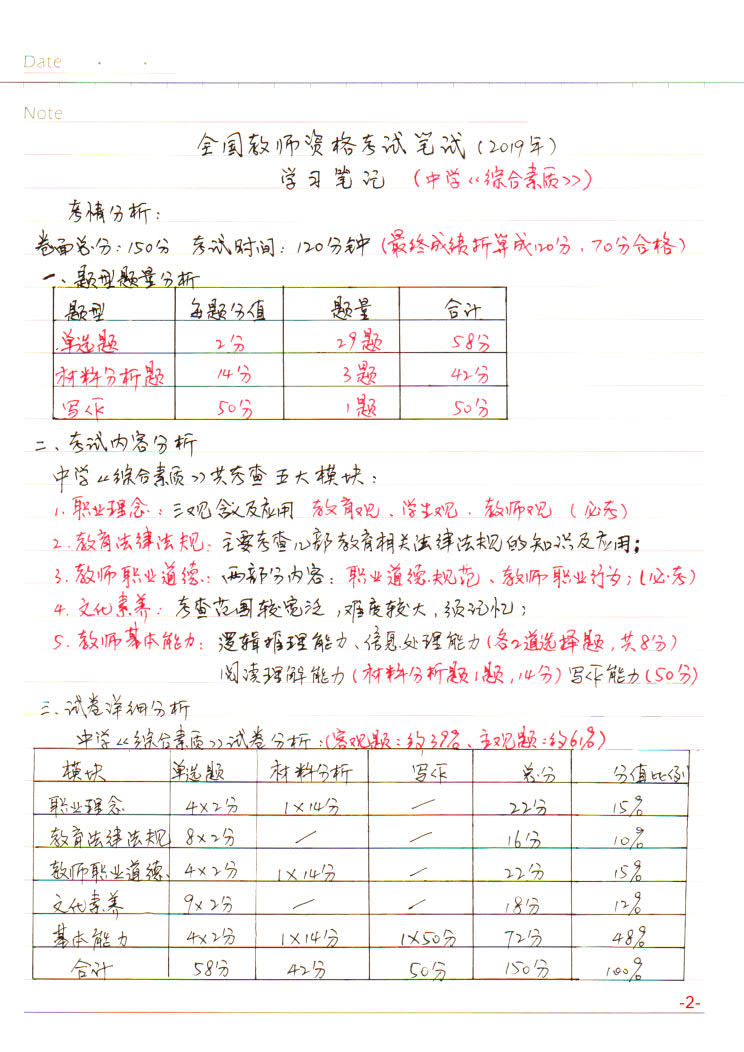 Date
Note
全国教师资格考试笔试(2019年)
学习笔记 (中学《综合素质》)
考情分析:
卷面总分:150分 考试时间:120分钟(最终成绩折算成120分,70分合格)
一、题型题量分析
题型 每题分值 题量 合计
单选题 2分 29题 58分
材料分析题 14分 3题 42分
写作 50分 1题 50分
二、考试内容分析
中学《综合素质》共考查五大模块:
1.职业理念:三观含义及应用 教育观、学生观、教师观 (必考)
2.教育法律法规:主要考查几部教育相关法律法规的知识及应用;
3.教师职业道德:两部分内容:职业道德规范、教师职业行为;(必考)
4.文化素养:考查范围较宽泛,难度较大,须记忆;
5.教师基本能力:逻辑推理能力、信息处理能力(各2道选择题,共8分)
阅读理解能力(材料分析题1题,14分)写作能力(50分)
三、试卷详细分析
中学《综合素质》试卷分析:(客观题:约39%、主观题:约61%)
模块 单选题 材料分析 写作 总分 分值比例
职业理念 4×2分 1×14分 / 22分 15%
教育法律法规 8×2分 / / 16分 10%
教师职业道德 4×2分 1×14分 / 22分 15%
文化素养 9×2分 / / 18分 12%
基本能力 4×2分 1×14分 1×50分 72分 48%
合计 58分 42分 50分 150分 100%
-2-